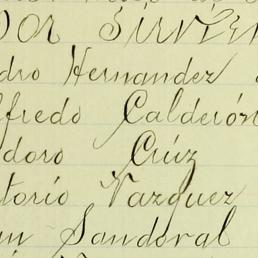 por Sirvien
dro Hernandez
lfredo Calderón
doro Crúz
torio Vazquez
Sandoval